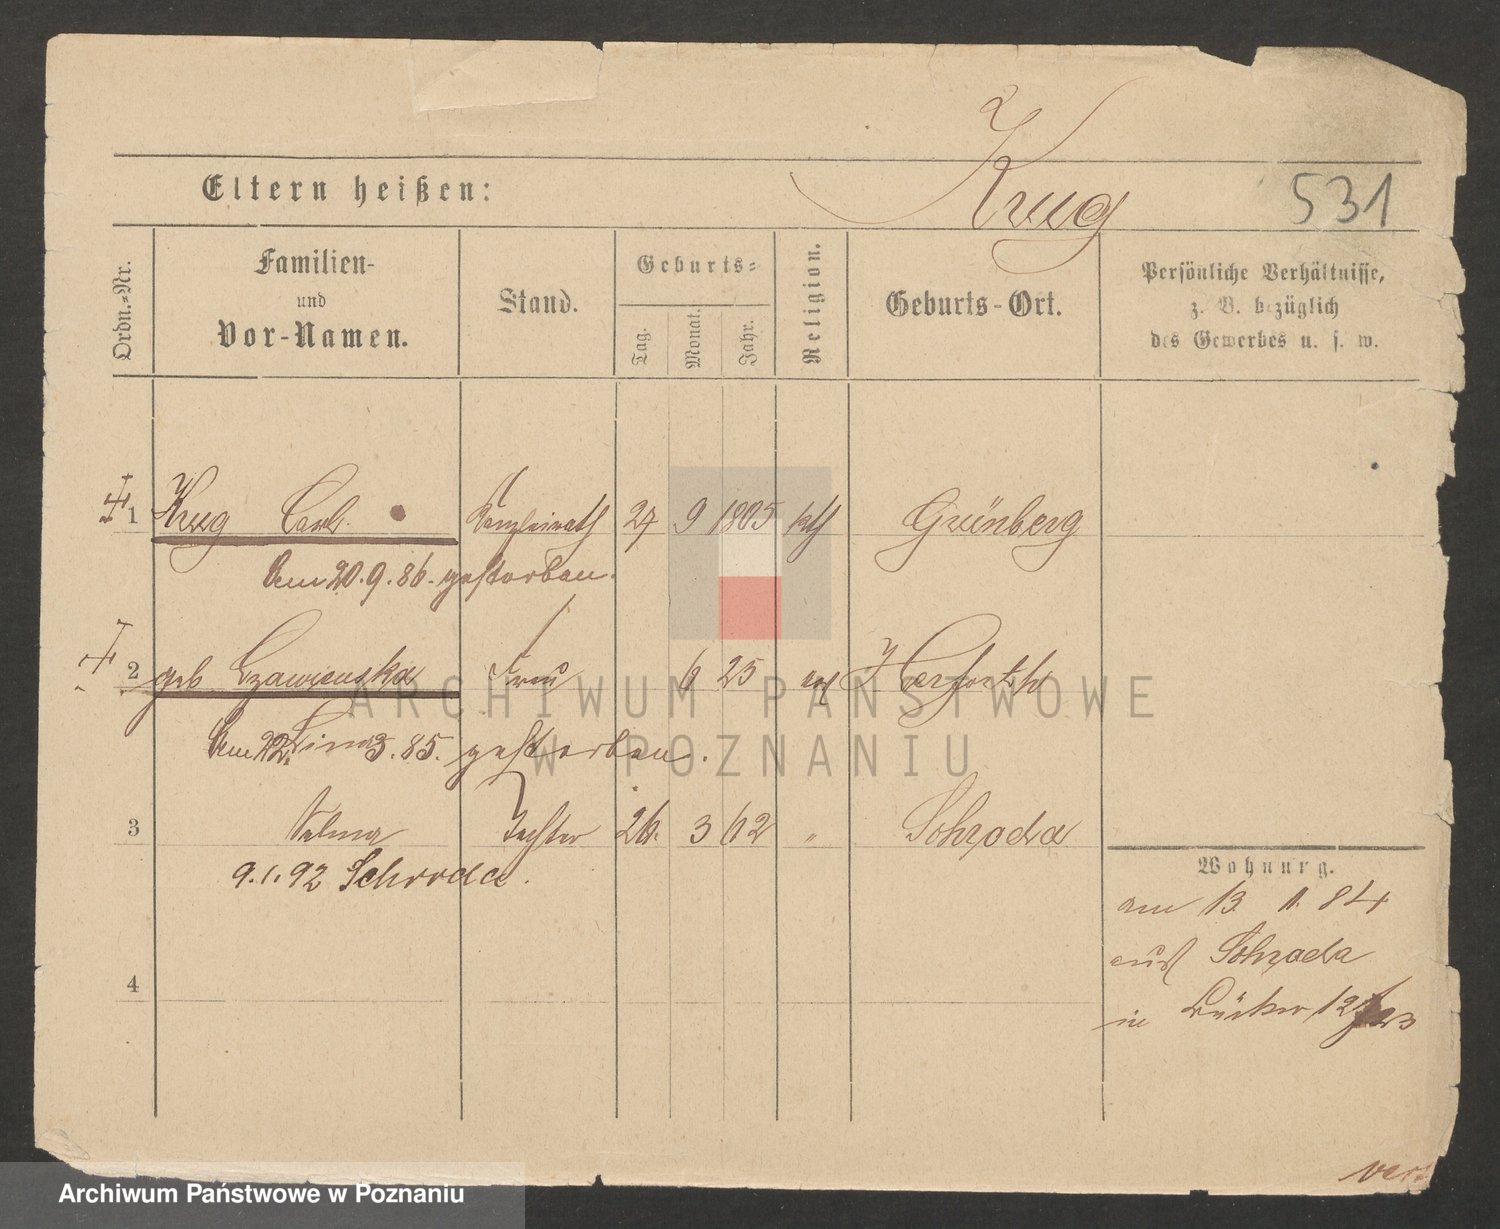 Krug
Eltern heißen: 531
Ordn.=Nr. Familien- und Vor-Namen. Stand. Geburts= Tag. Monat. Jahr. Religion. Geburts-Ort. Persönliche Verhältnisse, z. B. bezüglich des Gewerbes u. s. w.
1 Krug Carl. Kanzleirath 27 9 1805 kth Grünberg
Am 20.9.86. gestorben.
2 geb Czawienska Frau 6 25
Am 22. 3.85. gestorben.
3 Selma Tochter 26. 3 62 " Schroda
9.1.92 Schroda.
Wohnung.
am 13. 11. 84
aus Schroda
4
in
ARCHIWUM PAŃSTWOWE
W POZNANIU
Archiwum Państwowe w Poznaniu